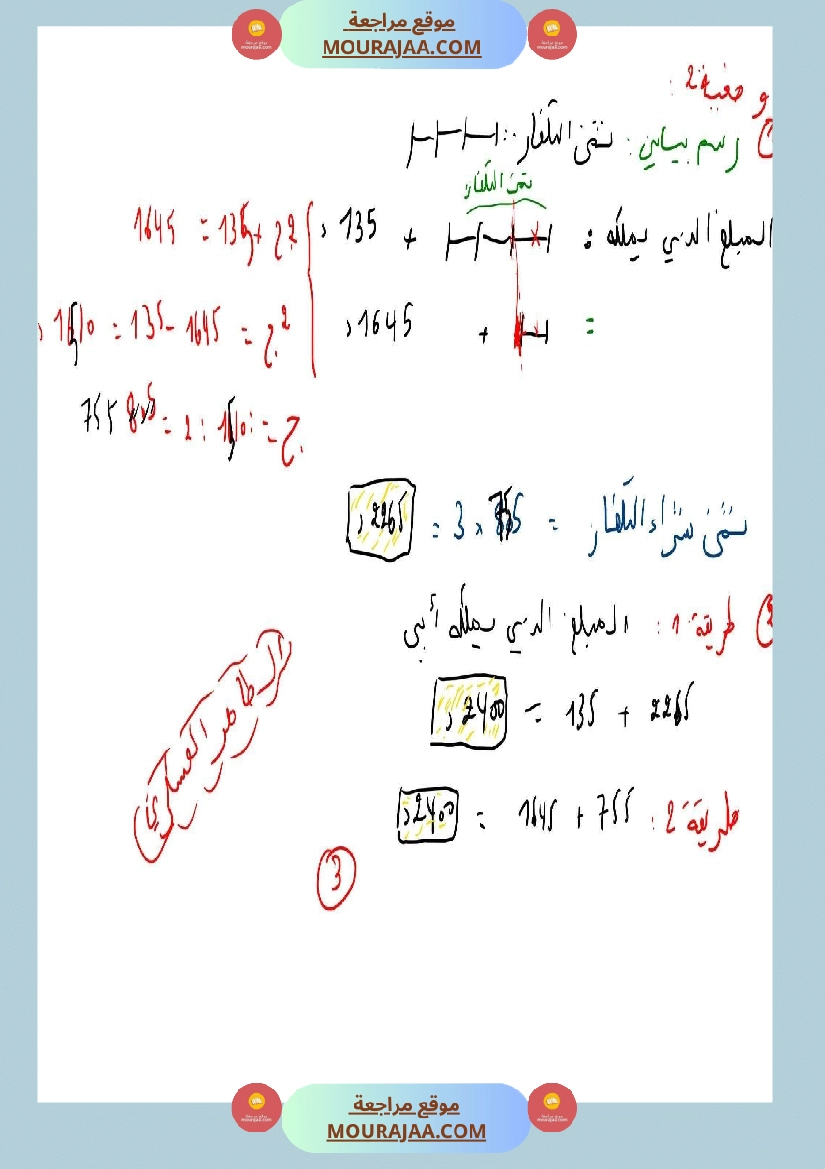 موقع مراجعة
MOURAJAA.COM
وضعية 2:
1) رسم بياني: ثمن التلفاز:
ثمن التلفاز
المبلغ الذي يملكه: + 135 د
2ج + 135 = 1645
= + 1645 د
2ج = 1645 - 135 = 1510 د
ج = 1510 : 2 = 755
ثمن شراء التلفاز = 755 × 3 = 2265 د
2) طريقة 1: المبلغ الذي يملكه أبي
2265 + 135 = 2400 د
طريقة 2: 755 + 1645 = 2400 د
الطاهر العسكري
3
موقع مراجعة
MOURAJAA.COM